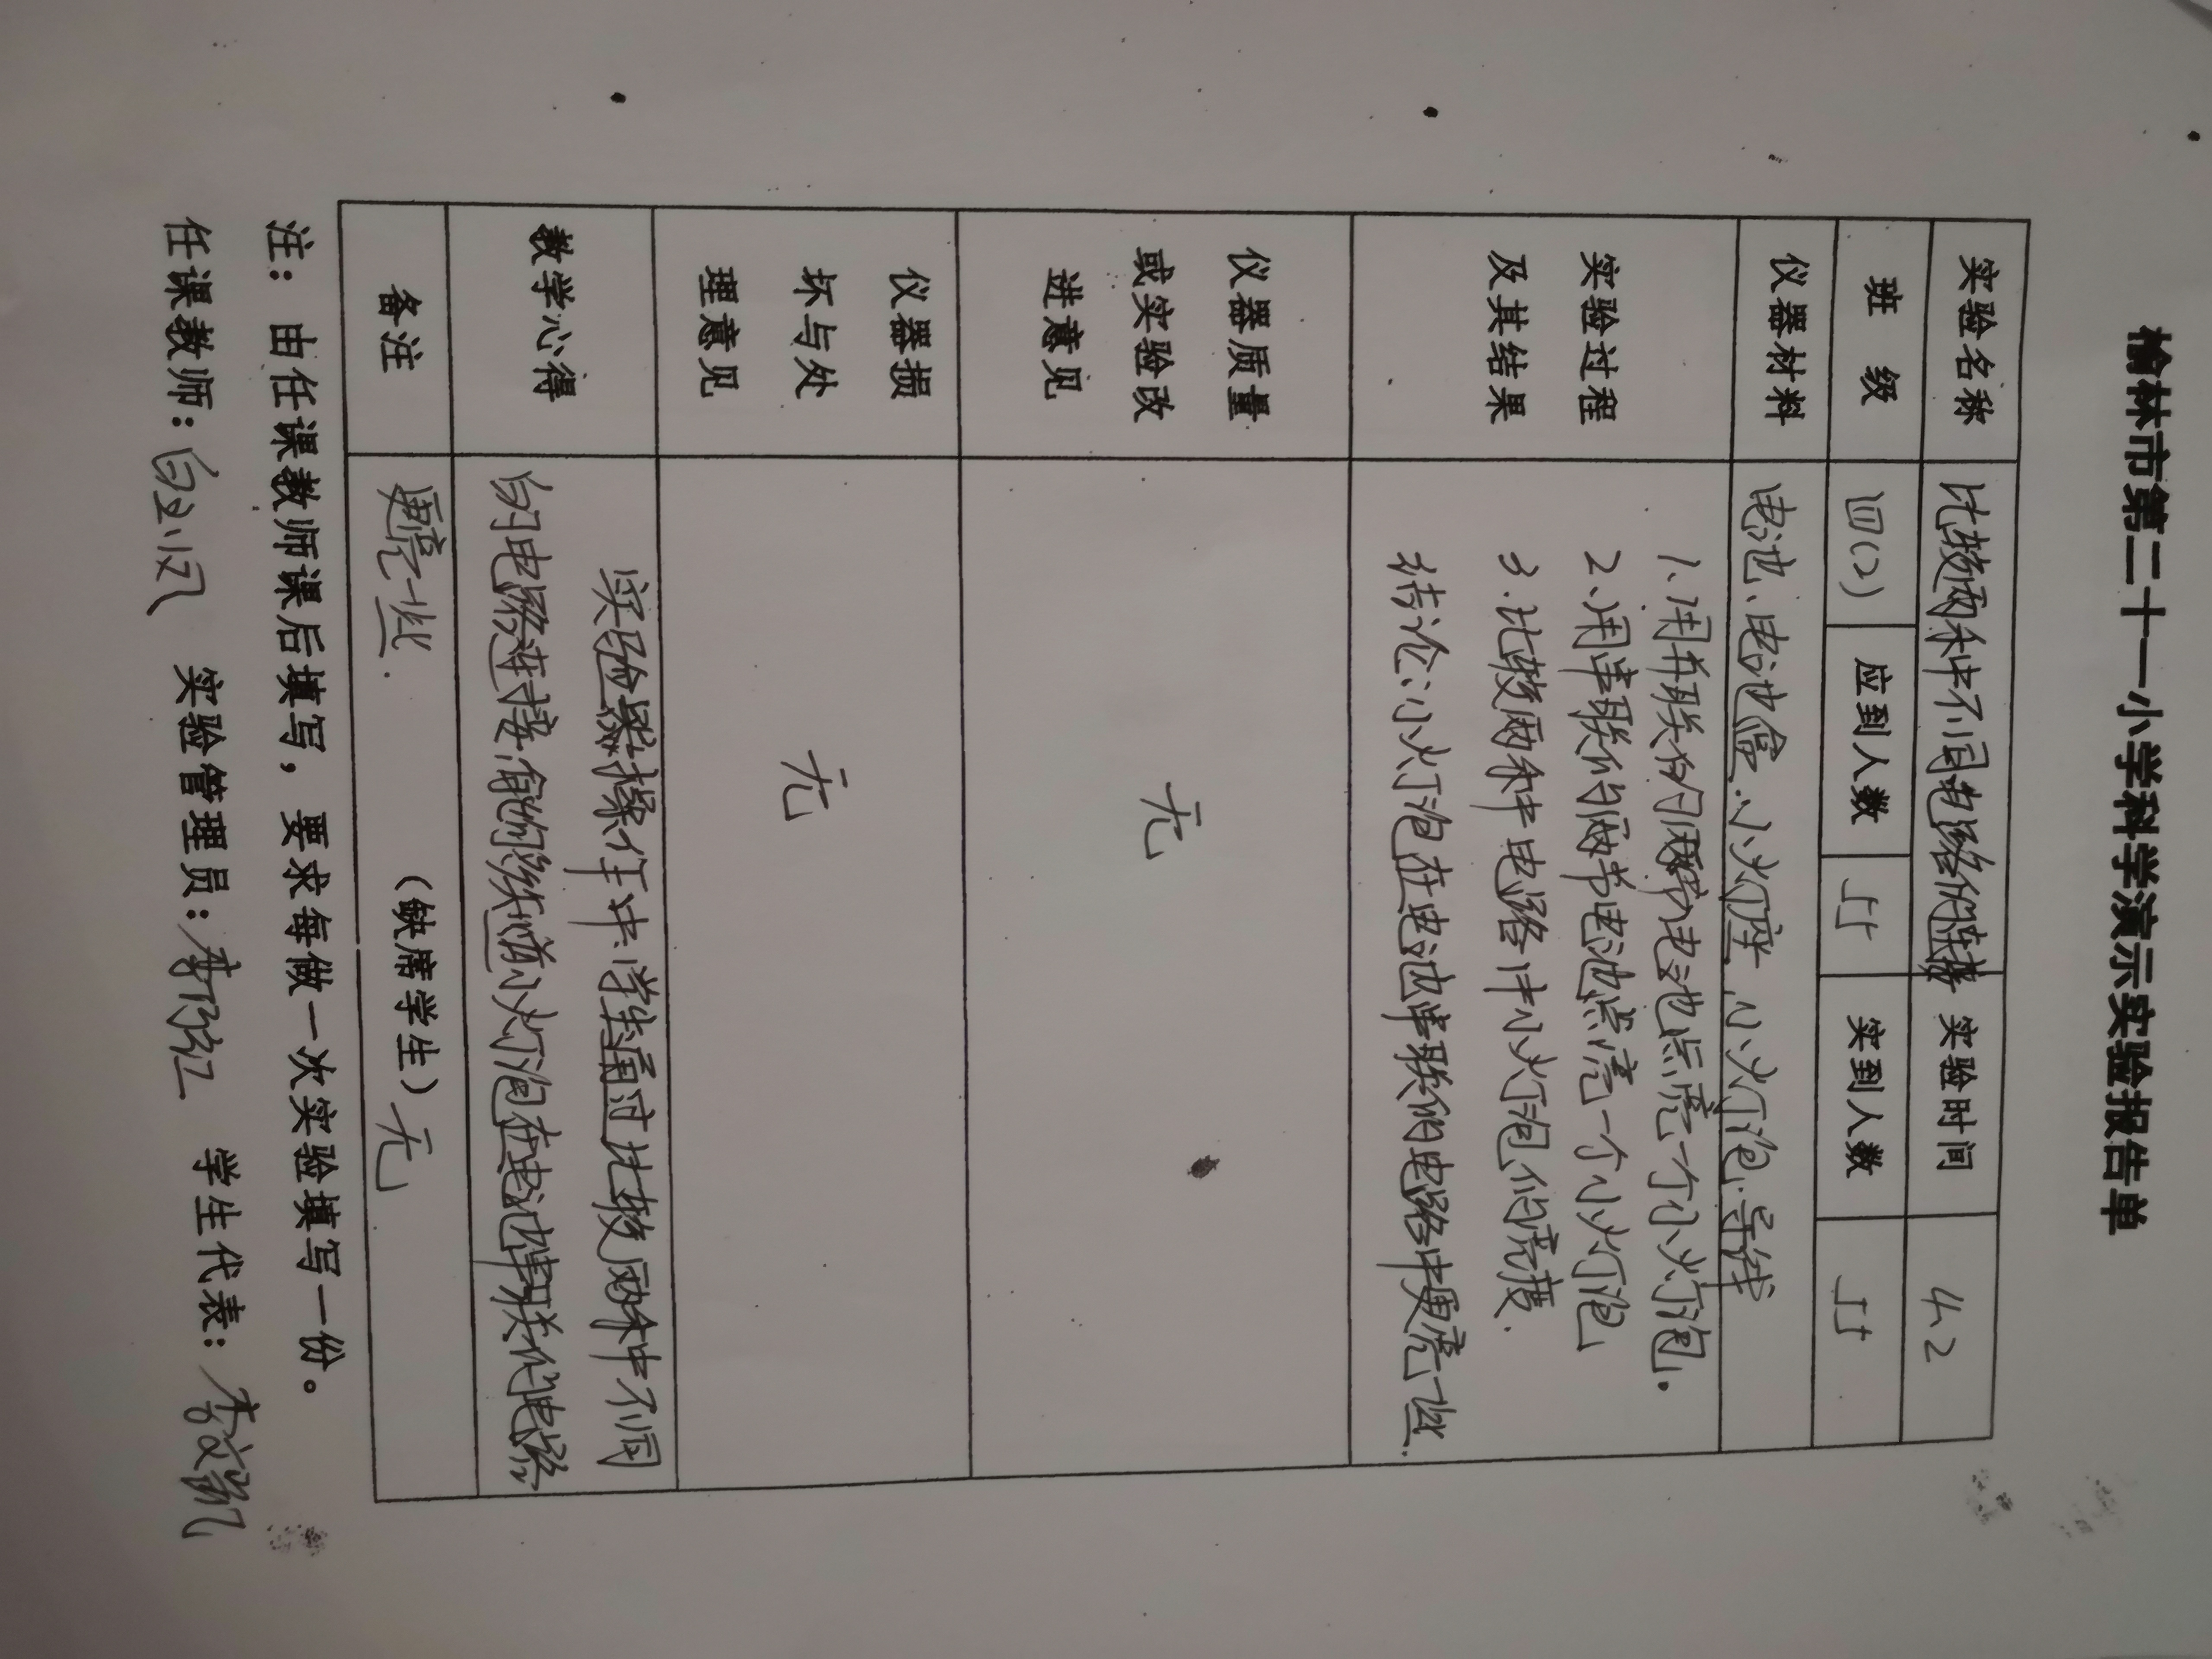 榆林市第二十一小学科学演示实验报告单
实验名称 比较两种不同电路的连接 实验时间 4.2
班 级 四(2) 应到人数 55 实到人数 55
仪器材料 电池、电池盒、小灯座、小灯泡、导线
实验过程
及其结果
1.用并联的两节电池点亮一个小灯泡.
2.用串联的两节电池点亮一个小灯泡
3.比较两种电路中小灯泡的亮度.
结论:小灯泡在电池串联的电路中更亮一些.
仪器质量
或实验改
进意见
无
仪器损
坏与处
理意见
无
教学心得
实验操作中,学生通过比较两种不同
的电路连接,能够知道小灯泡在电池串联的电路
备注
更亮一些.
(缺席学生) 无
注: 由任课教师课后填写, 要求每做一次实验填写一份。
任课教师: 实验管理员: 学生代表: